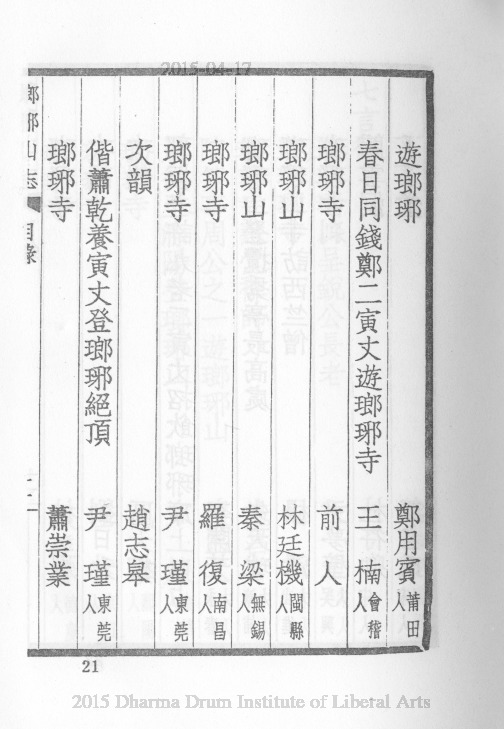 2015-04-17
遊瑯琊 鄭用賓 莆田人
春日同錢鄭二寅丈遊瑯琊寺 王楠 會稽人
瑯琊寺 前人
瑯琊山 林廷機 閩縣人
瑯琊山 秦梁 無錫人
瑯琊寺 羅復 南昌人
瑯琊寺 尹瑾 東莞人
次韻 趙志皋
偕蕭乾養寅丈登瑯琊絕頂 尹瑾 東莞人
瑯琊寺 蕭崇業
瑯琊山志 目錄
21
2015 Dharma Drum Institute of Liberal Arts